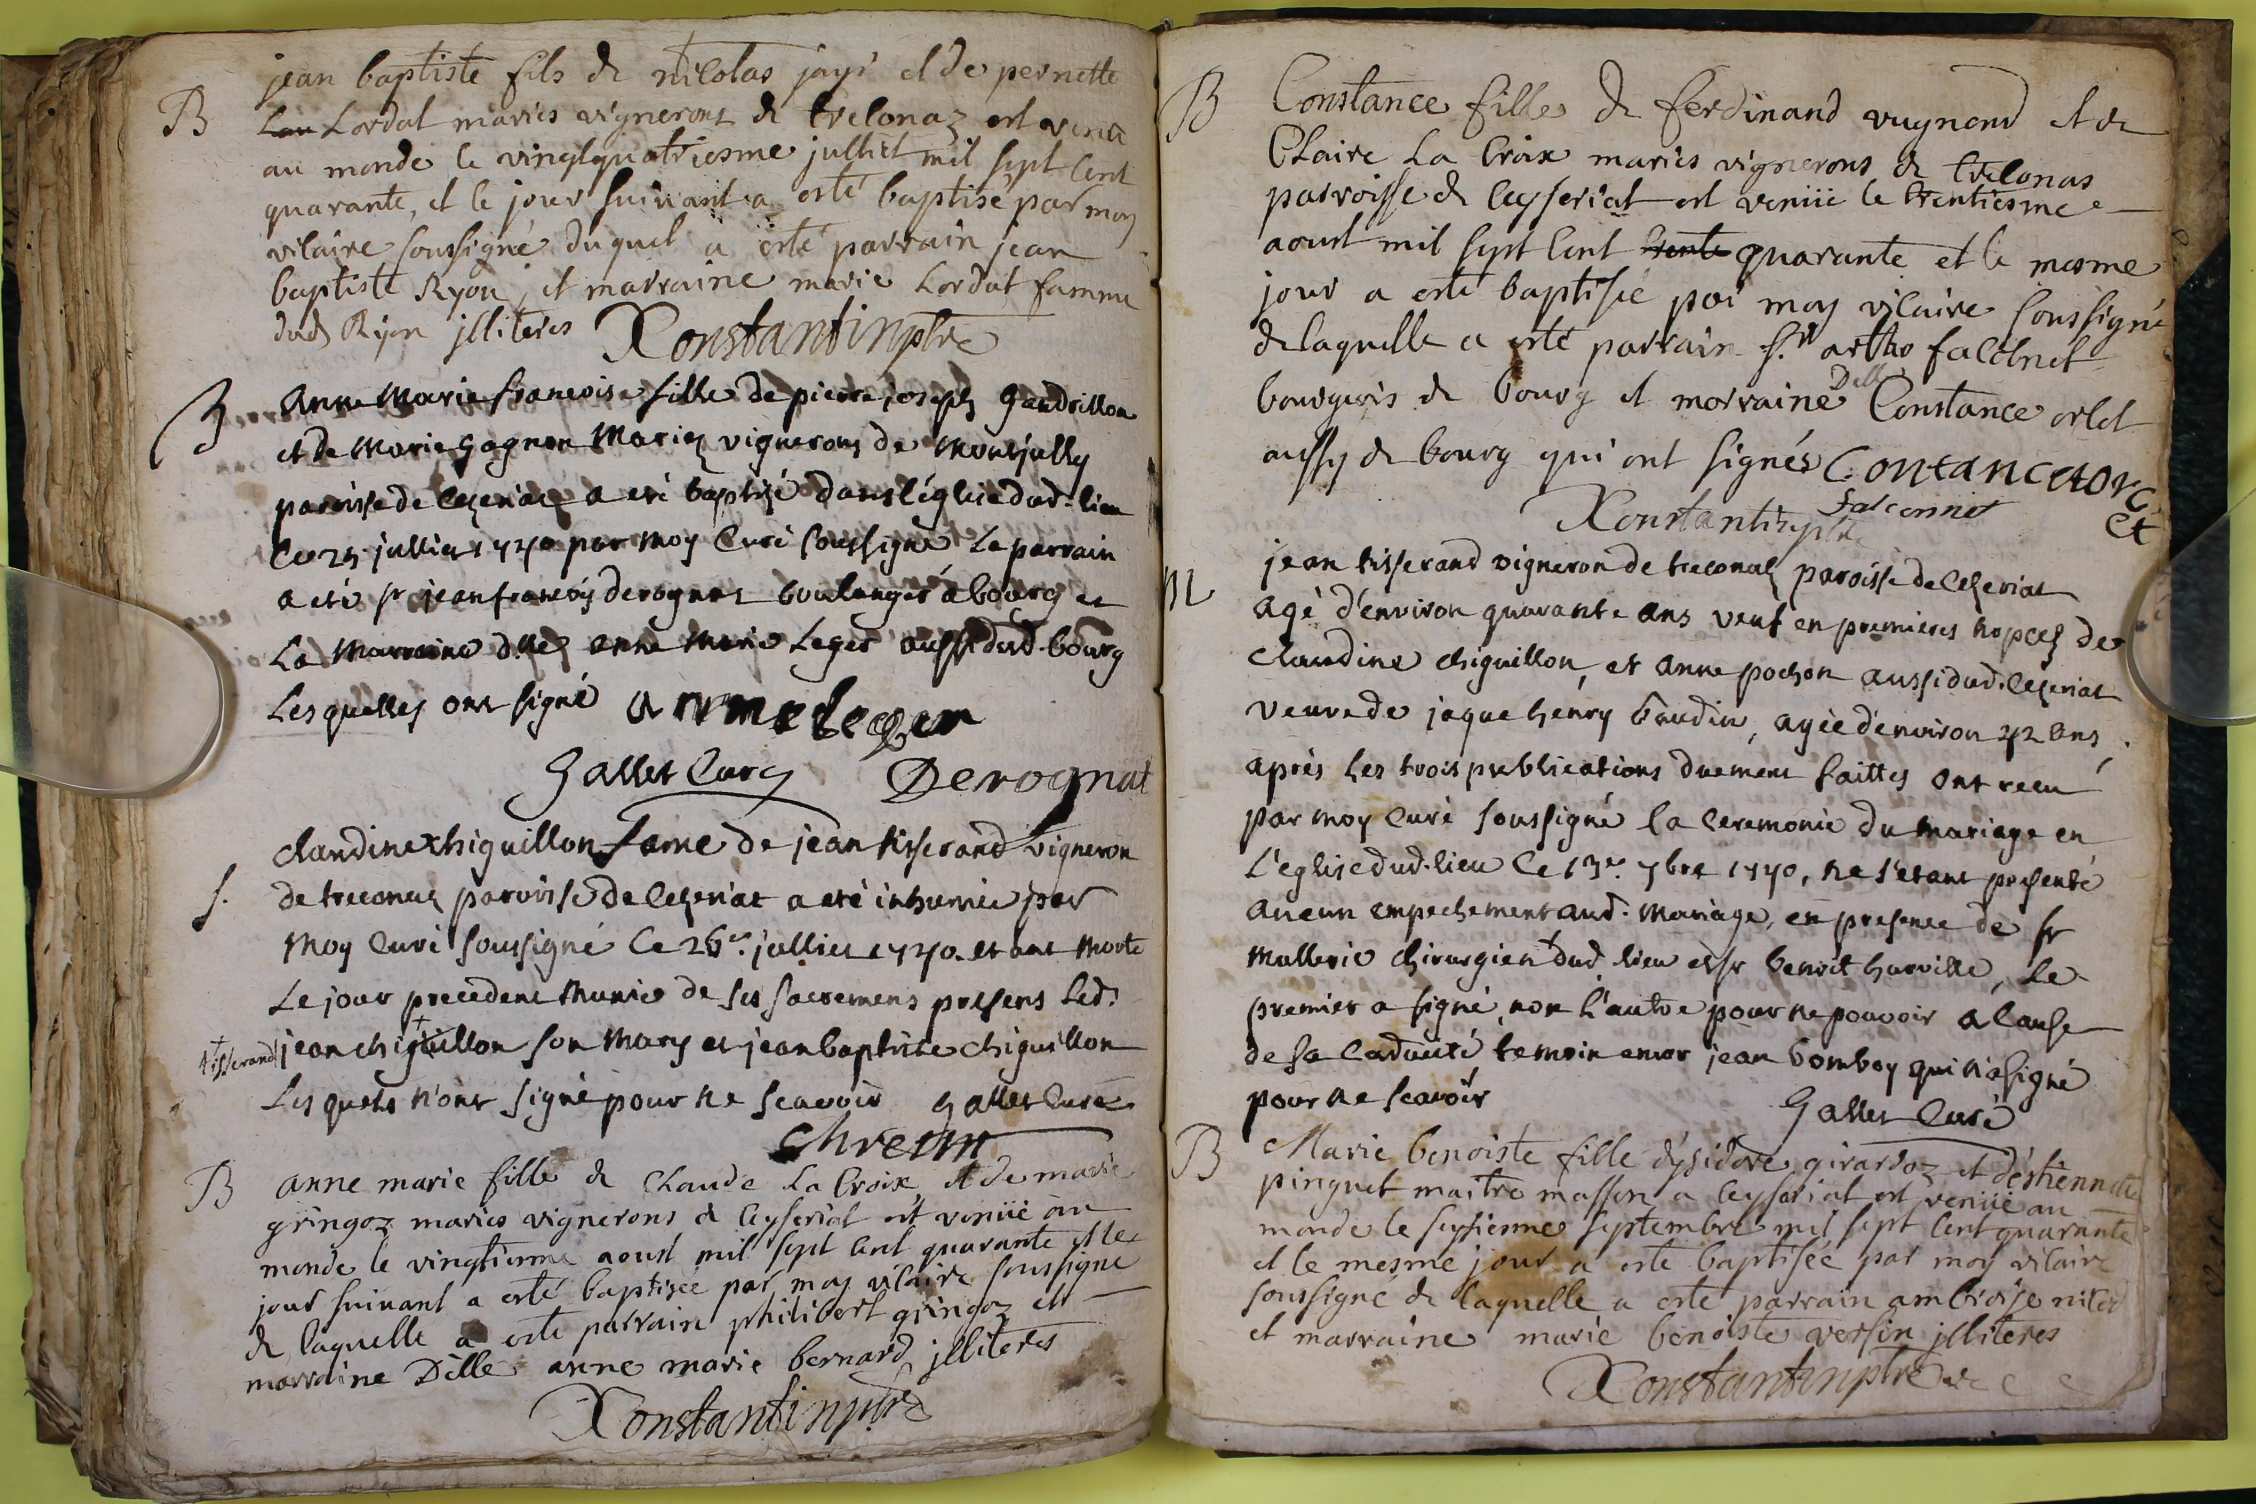 B
jean baptiste fils de nicolas jayr et de pernette
Lau Lordat mariés vignerons de treconaz est venu
au monde le vingtquatriesme julliet mil sept cent
quarante, et le jour suivant a esté baptisé par moy
vicaire soussigné duquel a esté parrain jean
baptiste Ryon, et marraine marie Lordat famme
dud Rion jlliteres Constantin ptre
B
anne Marie francoise fille de pierre joseph Gaudrillon
et de Marie gagnon Mariez vignerons de Montjully
paroisse de Ceyzeriat a eté baptisé dans l'église dud. lieu
ce 25 julliet 1740 par moy Curé soussigné Le parrain
a eté sr jean francois derognat boulanger à bourg et
La Marraine d.lle anne Marie Leger aussi dud. bourg
Lesquelles ont signé anne leger
Gallet Curé Derognat
S.
claudine chiguillon fame de jean tisserand vigneron
de treconaz paroisse de Ceyzeriat a eté inhumée par
Moy Curé soussigné Ce 26e. julliet 1740. etant Morte
Le jour precedent Munie de ses sacremens presens led.
+ tisserand
jean chiguillon son Mary et jean baptiste chiguillon
Lesquels n'ont signé pour ne scavoir Gallet Curé
chretin
B
anne marie fille de Claude La Croix et de marie
gringoz mariés vignerons a Ceyseriat est venüe au
monde le vingtienme aoust mil sept cent quarante et le
jour suivant a esté baptisée par moy vicaire soussigné
de laquelle a esté parrain philibert gringoz et
marraine Dlle anne marie bernard jlliteres
Constantin ptre
B
Constance fille de ferdinand vugnond et de
Claire La Croix mariés vignerons de treconas
parroisse de Ceyseriat est venüe le trentiesme
aoust mil sept cent trente quarante et le mesme
jour a esté baptisée par moy vicaire soussigné
de laquelle a esté parrain s.r falconet
bourgeois de bourg et marraine Dlle Constance orset
aussy de bourg qui ont signés Contance orc
et
falconnet
Constantin ptre
M
jean tisserand vigneron de treconaz paroisse de Ceyzeriat
agé d'environ quarante ans veuf en premieres nopces de
claudine chiguillon, et anne pochon aussi dud. Ceyzeriat
veuve de jaque henry baudin, agée d'environ 42 ans,
après Les trois publications duement faittes ont recu
par moy Curé soussigné la Ceremonie du mariage en
L'eglise dud. lieu Ce 13e. 7bre 1740, ne s'etant presenté
aucun empechement aud. Mariage, en presence de sr
Mullerie chirurgien dud. lieu et sr benoit harville, Le
premier a signé, non L'autre pour ne pouvoir a Cause
de sa Caducité temoin encor jean bombey qui n'a signé
pour ne scavoir
Gallet Curé
B
Marie benoiste fille d'ysidore girardoz et d'estiennette
pinguet maitre masson a Ceyseriat est venüe au
monde le seyzienme septembre mil sept cent quarante
et le mesme jour a esté baptisée par moy vicaire
soussigné de laquelle a esté parrain ambroise
et marraine marie benoiste versin jlliteres
Constantin ptre